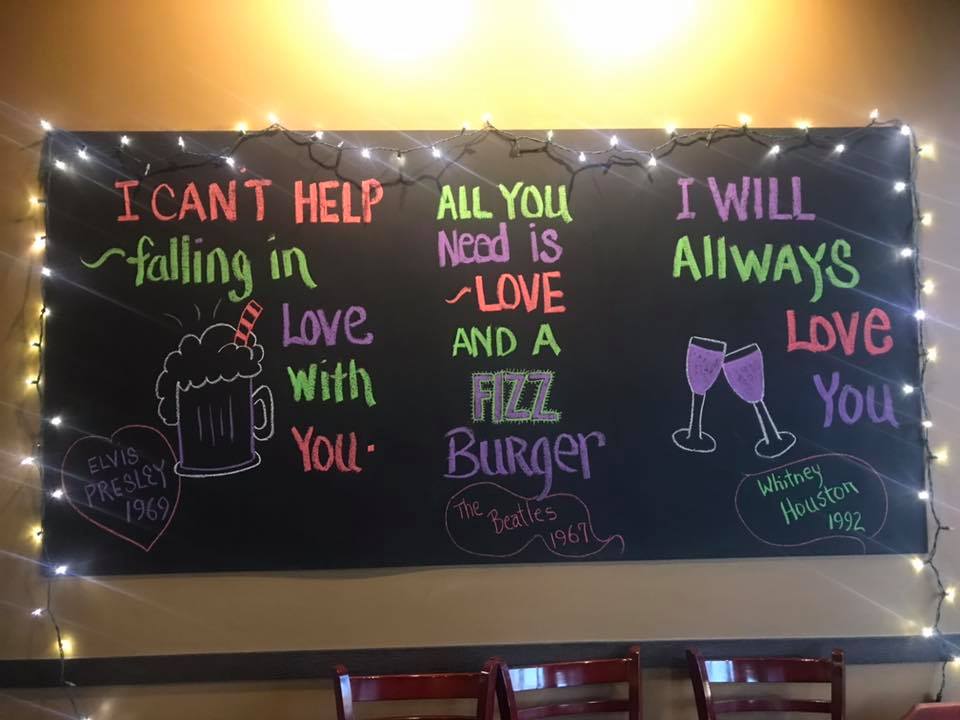 I CAN'T HELP
~falling in
LOVE
With
YOU.
ELVIS
PRESLEY
1969
ALL YOU
Need is
~LOVE
AND A
FIZZ
BURGER
The
Beatles
1967
I WILL
AllWAYS
LOVE
YOU
Whitney
Houston
1992